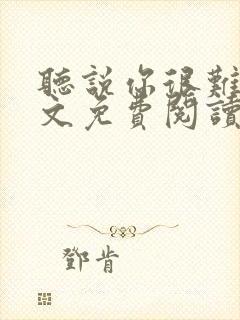 聽說你很難
文免費閱讀
鄧肯